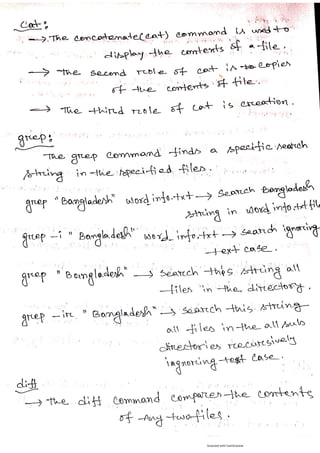 Cat:
→ The concatenate(cat) command is used to
display the contents of a file.
→ The second role of cat is to copies
of the contents of file.
→ The third role of cat is creation.
grep:
The grep command finds a specific search
string in the specified files.
grep "Bangladesh" word_info.txt → Search Bangladesh
string in word_info.txt file
grep -i "Bangladesh" word_info.txt → search ignoring
text case.
grep "Bangladesh" → Search this string all
files in the directory.
grep -ir "Bangladesh" → Search this string
all files in the all sub
directories recursively
ingnoring text case.
diff
→ The diff command compares the contents
of any two files.
Scanned with CamScanner